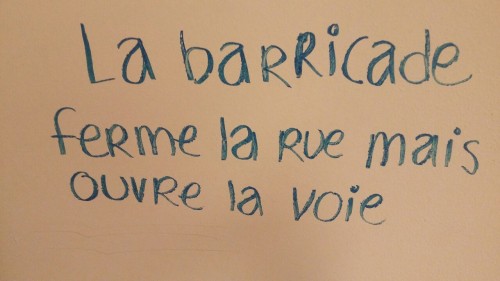 La barricade
ferme la rue mais
ouvre la voie